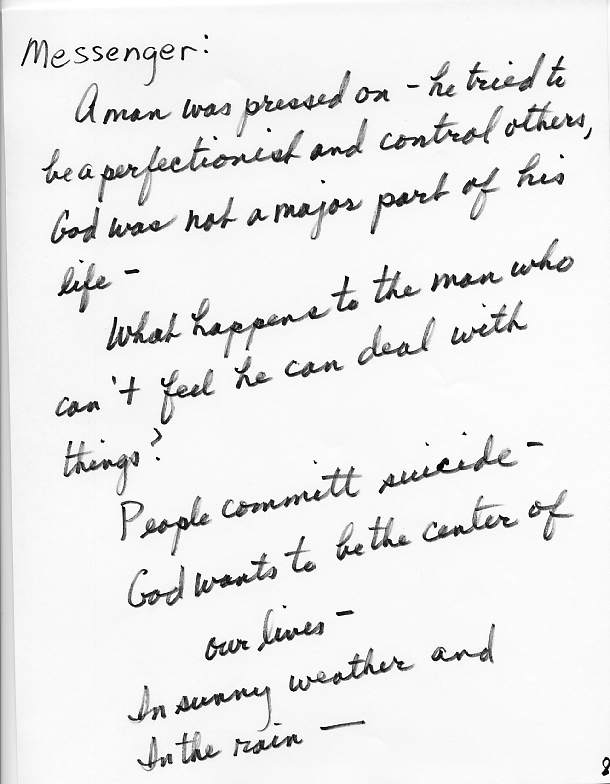 Messenger:
A man was pressed on - he tried to
be a perfectionist and control others,
God was not a major part of his
life -
What happens to the man who
can't feel he can deal with
things?
People committ suicide -
God wants to be the center of
our lives -
In sunny weather and
In the rain —
8